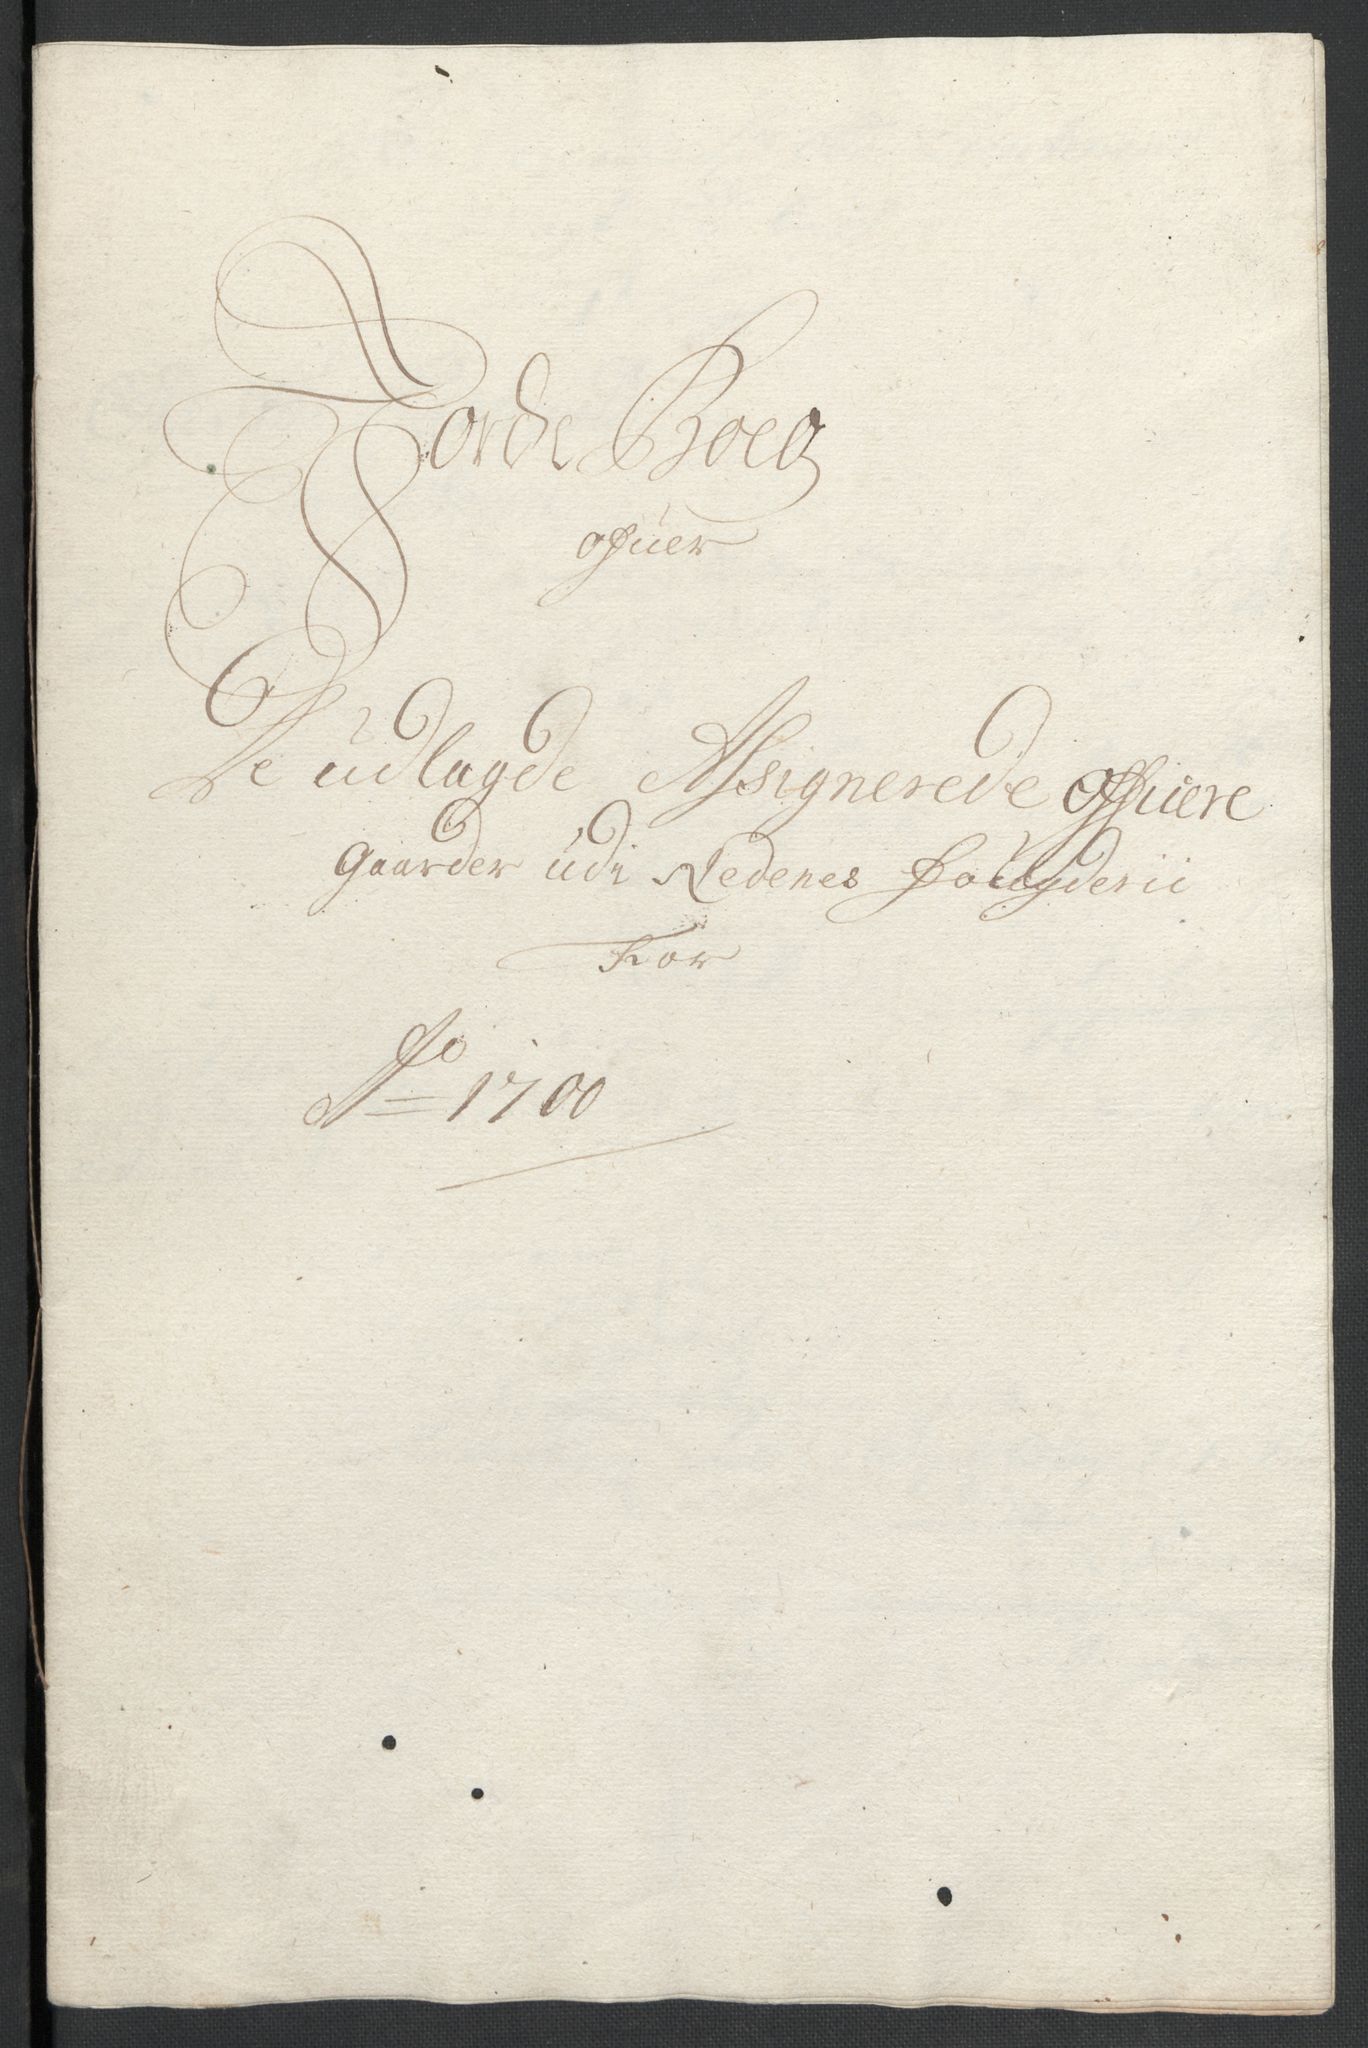 Jorde Boeg
ofuer
De udlagde Assignerede Officere
Gaarder udi Nedenes Fougderii
For
Ao 1700